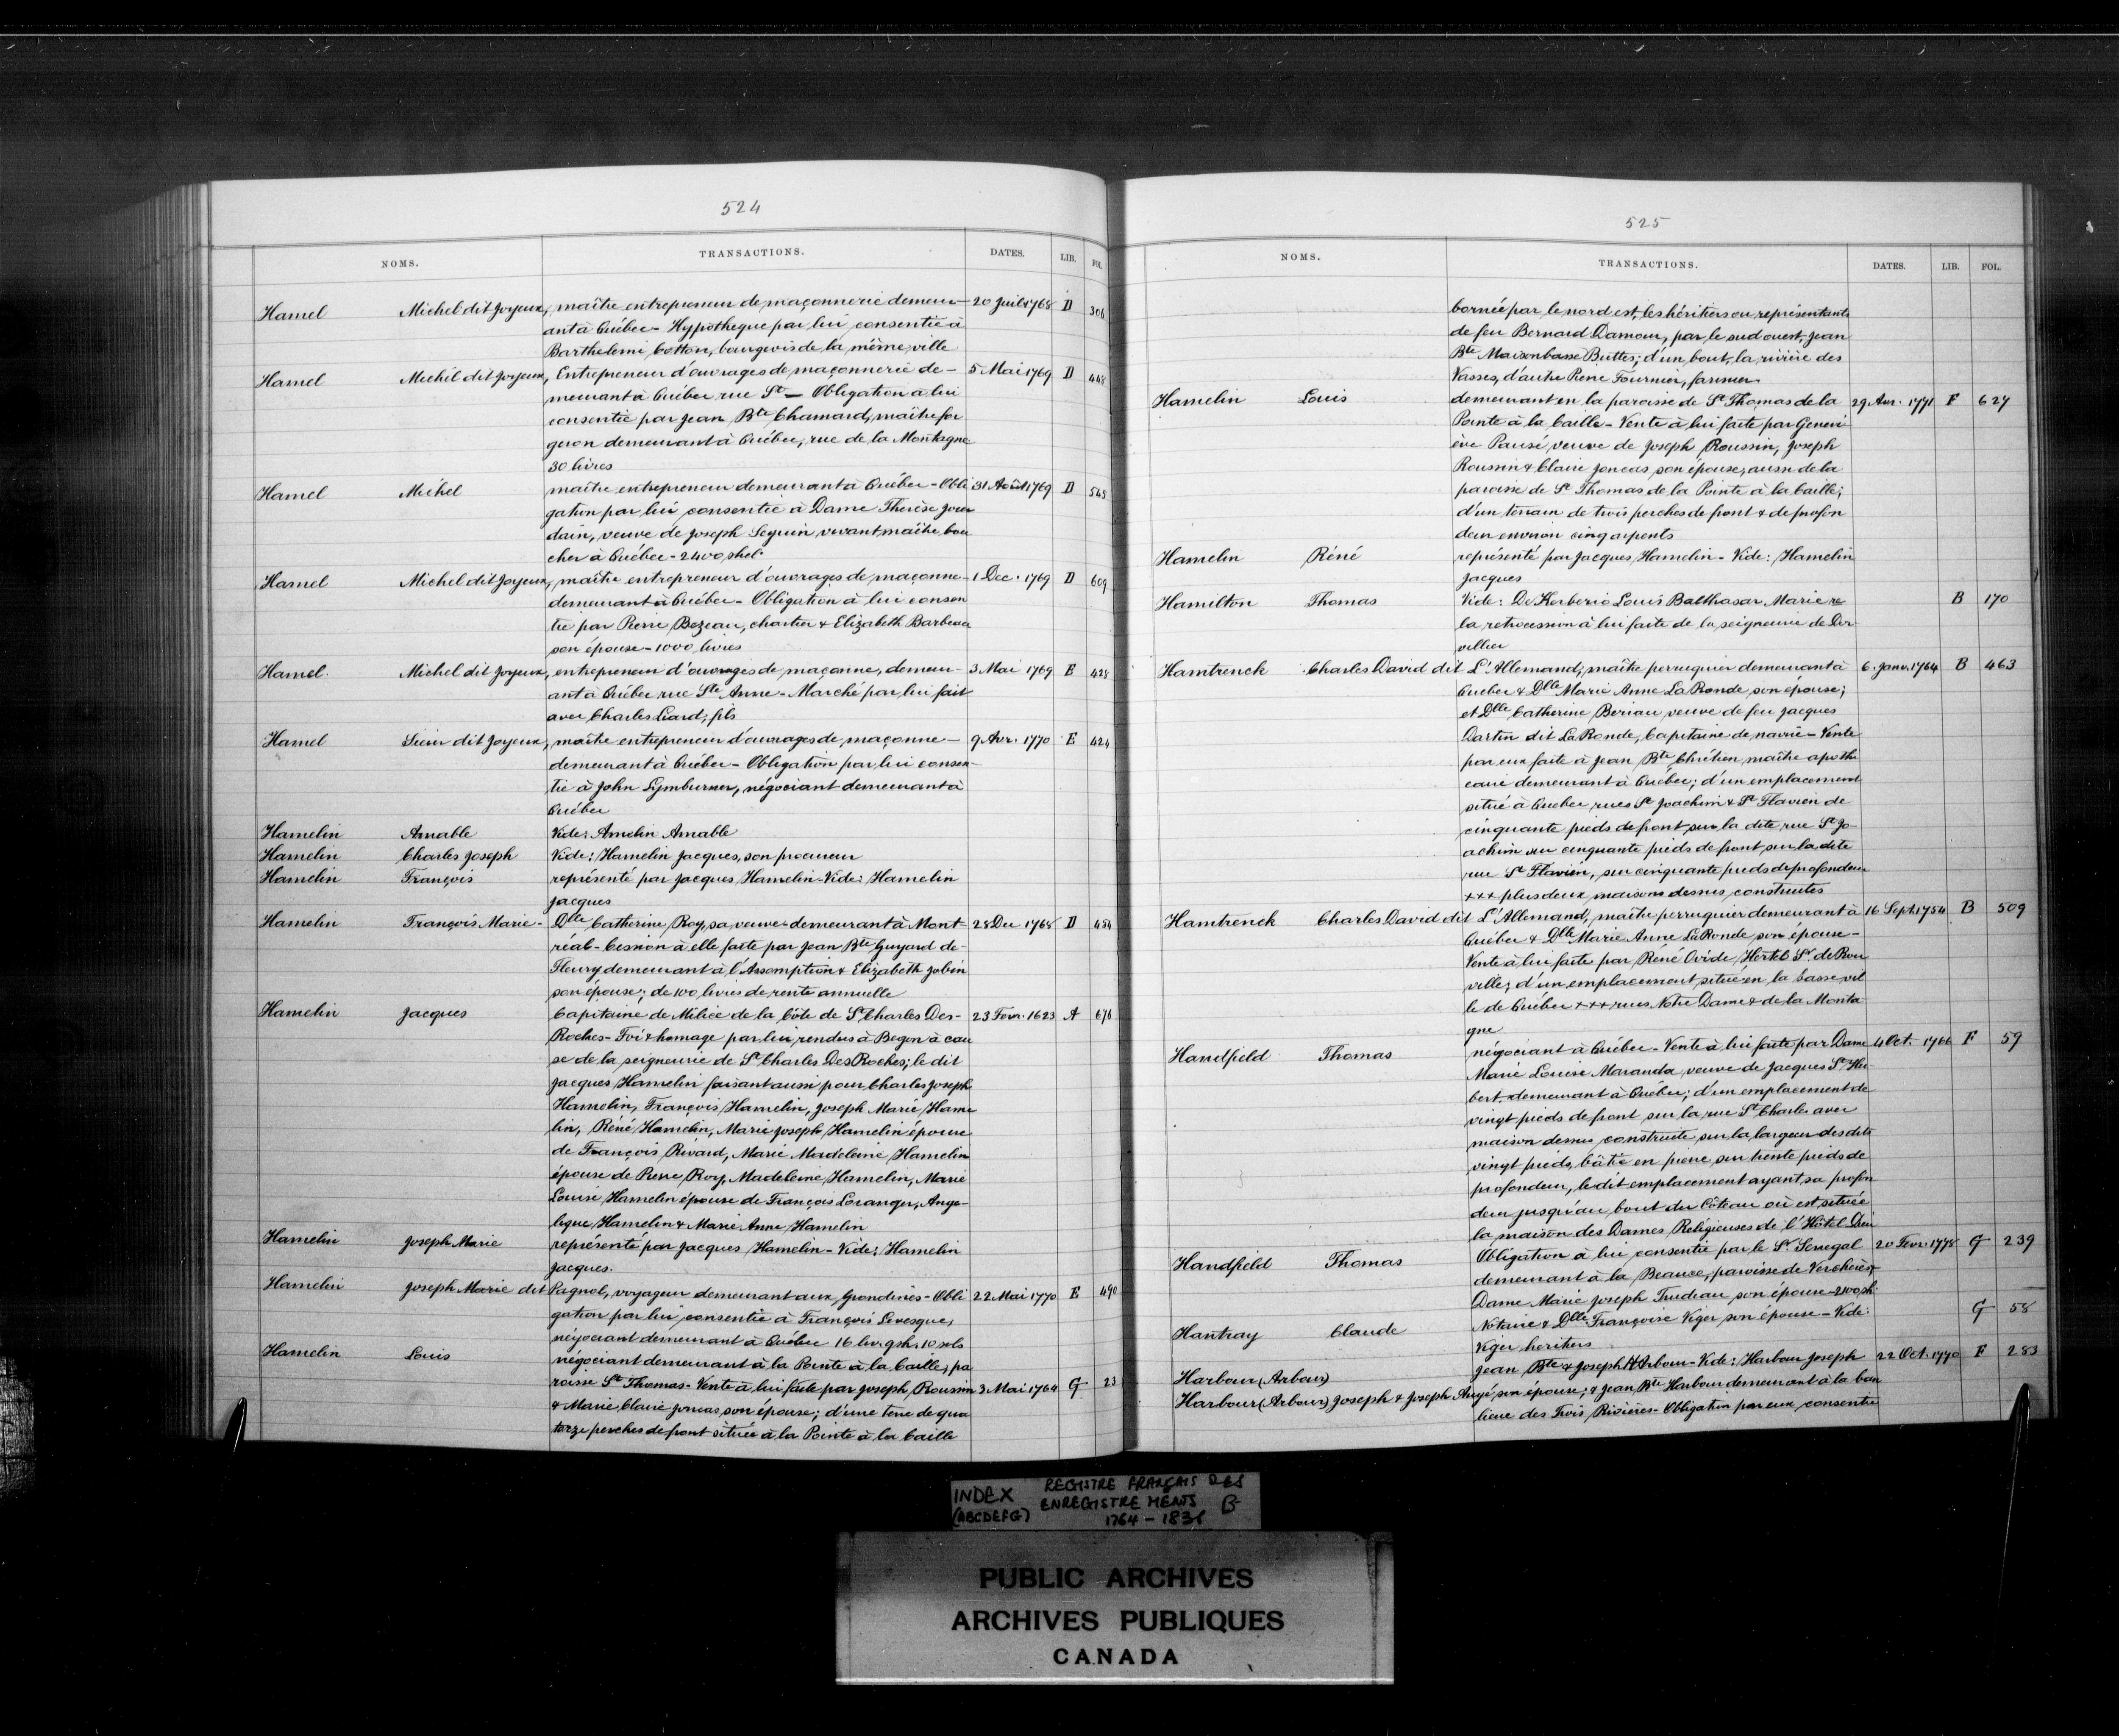 524
NOMS. TRANSACTIONS. DATES. LIB. FOL.
Hamel Michel dit Joyeux, maître entrepreneur de maçonnerie demeur- 20 Juil. 1768 D 306
ant à Québec - Hypotheque par lui consentie à
Barthelemi Cotton, bourgeois de la même ville
Hamel Michel dit Joyeux, Entrepreneur d'ouvrages de maçonnerie de- 5 Mai 1769 D 448
meurant à Québec rue St — Obligation à lui
consentie par Jean Bte Chamard, maître for
geron demeurant à Québec, rue de la Montagne
30 livres
Hamel Michel maître entrepreneur demeurant à Québec - Obli 31 Août 1769 D 545
gation par lui consentie à Dame Thérèse Jour
dain, veuve de Joseph Seguin vivant maître bou
cher à Québec - 2400 shel.
Hamel Michel dit Joyeux, maître entrepreneur d'ouvrages de maçonne- 1 Dec. 1769 D 609
demeurant à Québec - Obligation à lui consen
tie par Pierre Bezeau, chartier & Elizabeth Barbeau
son épouse - 1000 livres
Hamel. Michel dit Joyeux, entrepreneur d'ouvrages de maçonne, demeur- 3 Mai 1769 E 428
ant à Québec rue Ste Anne - Marché par lui fait
avec Charles Liard, fils
Hamel Sieur dit Joyeux, maître entrepreneur d'ouvrages de maçonne- 9 Avr. 1770 E 424
demeurant à Québec - Obligation par lui consen-
tie à John Lymburner, négociant demeurant à
Québec
Hamelin Amable Vide: Amelin Amable
Hamelin Charles Joseph Vide: Hamelin Jacques, son procureur
Hamelin François représenté par Jacques Hamelin - Vide: Hamelin
Jacques
Hamelin François Marie - Dlle Catherine Roy, sa veuve demeurant à Mont- 28 Dec 1768 D 484
réal - Cession à elle faite par Jean Bte Guyard de-
Fleury demeurant à l'Assomption & Elizabeth Jobin
son épouse; de 100 livres de rente annuelle
Hamelin Jacques Capitaine de Milice de la Côte de St Charles Des- 23 Fevr. 1623 A 676
Roches - Foi & homage par lui rendus à Begon à cau
se de la seigneurie de St Charles DesRoches; le dit
Jacques Hamelin faisant aussi pour Charles Joseph
Hamelin, François Hamelin, Joseph Marie Hame
lin, Réné Hamelin, Marie Joseph Hamelin épouse
de François Rivard, Marie Madeleine Hamelin
épouse de Pierre Roy, Madeleine Hamelin, Marie
Louise Hamelin épouse de François Loranger, Ange-
lique Hamelin & Marie Anne Hamelin
Hamelin Joseph Marie représenté par Jacques Hamelin - Vide: Hamelin
Jacques.
Hamelin Joseph Marie dit Pagnol, voyageur demeurant aux Grondines - Obli 22 Mai 1770 E 490
gation par lui consentie à François Levesque,
négociant demeurant à Québec 16 liv. 9 sh. 10 sols
Hamelin Louis négociant demeurant à la Pointe à la Caille, pa
roisse St Thomas - Vente à lui faite par Joseph Roussin 3 Mai 1764 G 23
& Marie Claire Joncas, son épouse; d'une terre de qua
torze perches de front située à la Pointe à la Caille
525
NOMS. TRANSACTIONS. DATES. LIB. FOL.
bornée par le nord est, les héritiers ou représentants
de feu Bernard Damour, par le sud ouest, Jean
Bte Maisonbasse Buttes; d'un bout, la rivière des
Vasses, d'autre René Fournier, farinier
Hamelin Louis demeurant en la paroisse de St Thomas de la 29 Avr. 1771 F 627
Pointe à la Caille - Vente à lui faite par Genevi
ève Pausé, veuve de Joseph Roussin, Joseph
Roussin & Claire Joncas son épouse, aussi de la
paroisse de St Thomas de la Pointe à la Caille;
d'un terrain de trois perches de front & de profon
deur environ cinq arpents
Hamelin Réné représenté par Jacques Hamelin - Vide: Hamelin
Jacques
Hamilton Thomas Vide: De Kerberio Louis Balthasar Marie re B 170
la retrocession à lui faite de la seigneurie de Dor
villier
Hamtrenck Charles David dit L'Allemand; maître perruquier demeurant à 6. Janv. 1764 B 463
Quebec & Dlle Marie Anne LaRonde son épouse;
et Dlle Catherine Beriau veuve de feu Jacques
Dartin dit LaRonde, Capitaine de navire - Vente
par eux faite à Jean Bte Chrétien maître apothi
caire demeurant à Québec; d'un emplacement
situé à Quebec rues St Joachim & St Flavien de
cinquante pieds de front sur la dite rue St Jo-
achim sur cinquante pieds de front sur la dite
rue St Flavien, sur cinquante pieds de profondeur
+++ plus deux maisons dessus construites
Hamtrenck Charles David dit L'Allemand, maître perruquier demeurant à 16 Sept. 1754 B 509
Québec & Dlle Marie Anne LaRonde son épouse -
Vente à lui faite par Réné Ovide Hertel Sr. de Rou
ville; d'un emplacement situé en la basse vil
le de Québec +++ rues Notre Dame & de la Monta
gne
Handfield Thomas négociant à Québec - Vente à lui faite par Dame 4 Oct. 1766 F 59
Marie Louise Maranda veuve de Jacques St Hu
bert. demeurant à Québec; d'un emplacement de
vingt pieds de front sur la rue St Charles avec
maison dessus construite sur la largeur des dits
vingt pieds, bâtie en pierre sur trente pieds de
profondeur, le dit emplacement ayant sa profon
deur jusqu'au bout du Côteau où est située
la maison des Dames Religieuses de l'Hôtel Dieu
Handfield Thomas Obligation à lui consentie par le Sr. Senegal 20 Fevr. 1778 G 239
demeurant à la Beauce, paroisse de Verchères &
Dame Marie Joseph Trudeau son épouse - 2100 sh.
Hantray Claude Notaire & Dlle Françoise Viger son épouse - Vide: G 58
Viger heritiers
Harbour (Arbour) Jean Bte & Joseph Harbour - Vide: Harbour Joseph 22 Oct. 1770 F 283
Harbour (Arbour) Joseph & Joseph Augé son épouse; & Jean Bte Harbour demeurant à la ban
lieue des Trois Rivières - Obligation par eux consentie
INDEX (ABCDEFG) REGISTRE FRANÇAIS DES
ENREGISTREMENTS B-
1764 - 1836
PUBLIC ARCHIVES
ARCHIVES PUBLIQUES
CANADA